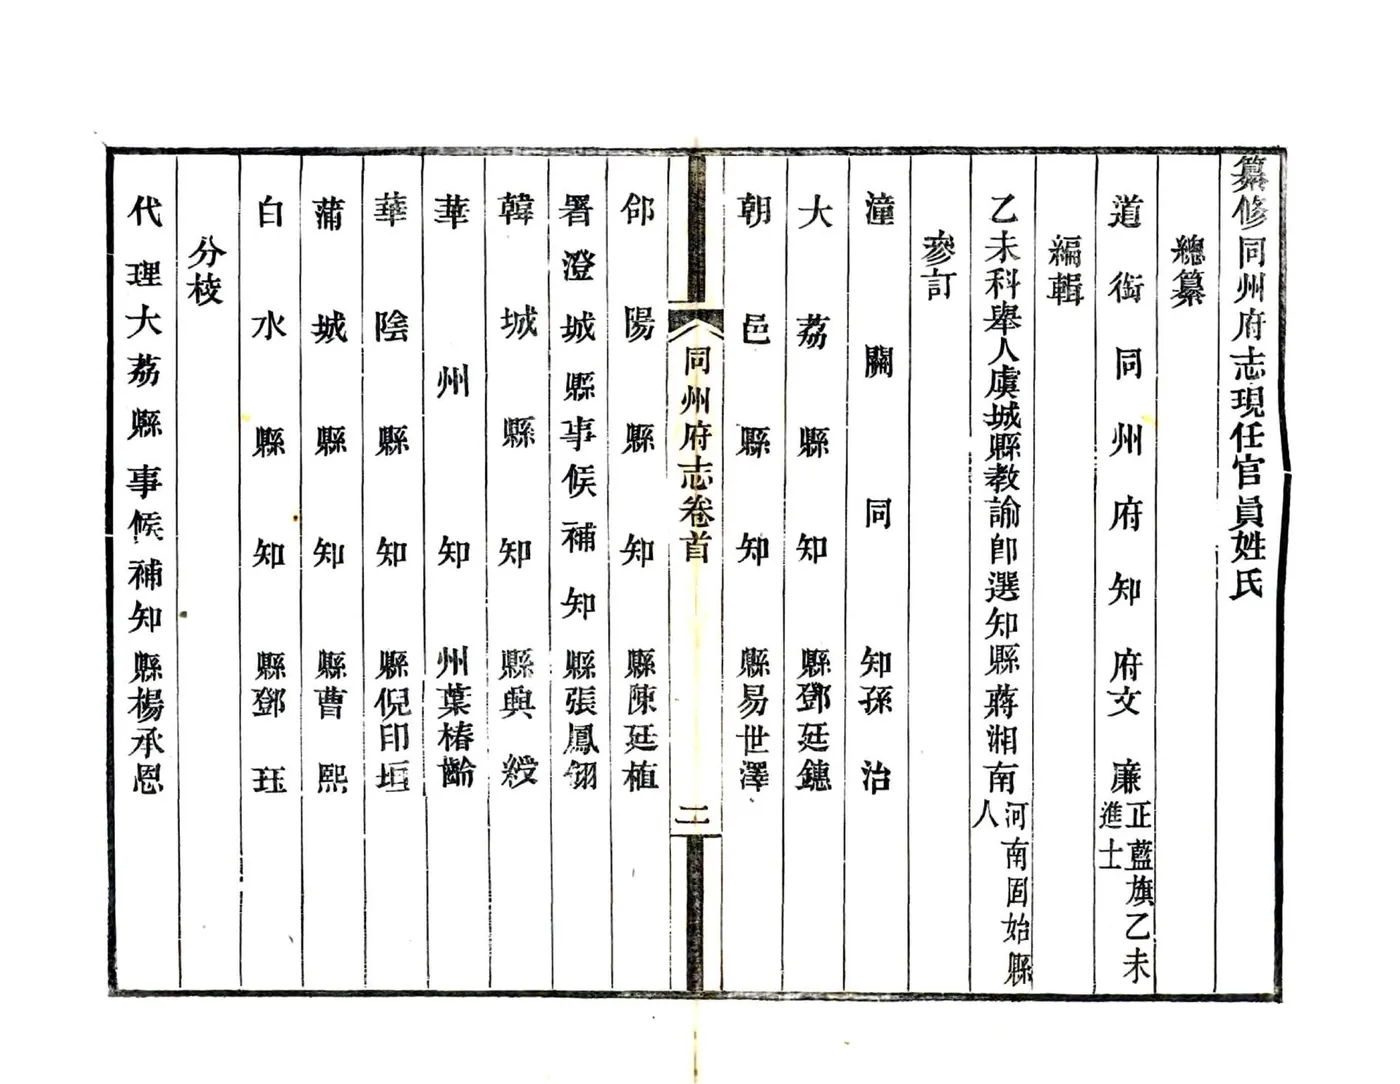 纂修同州府志現任官員姓氏
總纂
道銜同州府知府文廉正藍旗乙未進士
編輯
乙未科舉人虞城縣教諭即選知縣蔣湘南河南固始縣人
參訂
潼關同知孫治
大荔縣知縣鄧廷鏸
朝邑縣知縣易世澤
同州府志卷首
二
郃陽縣知縣陳廷植
署澄城縣事候補知縣張鳳翎
韓城縣知縣興綬
華州知州葉椿齡
華陰縣知縣倪印垣
蒲城縣知縣曹熙
白水縣知縣鄧玨
分校
代理大荔縣事候補知縣楊承恩